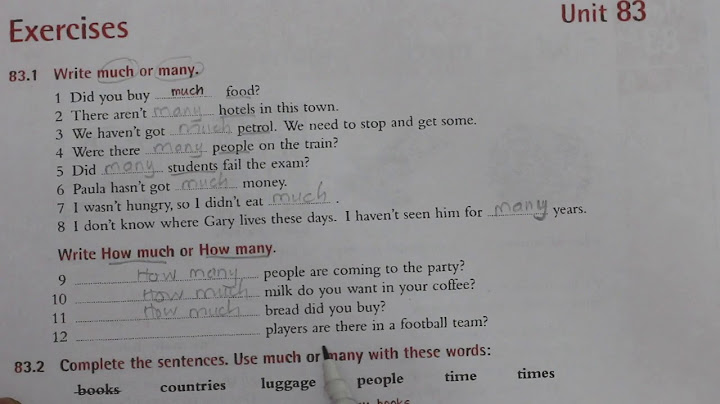 Exercises
Unit 83
83.1 Write much or many.
1 Did you buy much food?
2 There aren't many hotels in this town.
3 We haven't got much petrol. We need to stop and get some.
4 Were there many people on the train?
5 Did many students fail the exam?
6 Paula hasn't got much money.
7 I wasn't hungry, so I didn't eat much.
8 I don't know where Gary lives these days. I haven't seen him for many years.
Write How much or How many.
9 How many people are coming to the party?
10 How much milk do you want in your coffee?
11 How much bread did you buy?
12 players are there in a football team?
83.2 Complete the sentences. Use much or many with these words:
books countries luggage people time times
books